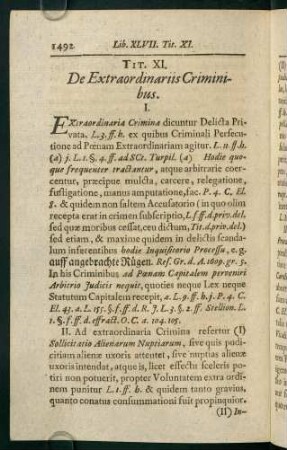 1492 Lib. XLVII. Tit. XI.
TIT. XI.
De Extraordinariis Crimini-
bus.
I.
EXtraordinaria Crimina dicuntur Delicta Pri-
vata, L.3.ff.h. ex quibus Criminali Persecu-
tione ad Pœnam Extraordinariam agitur. L.11.ff.h.
(a) j. L.1.§.4.ff. ad SCt. Turpil. (a) Hodie quo-
que frequenter tractantur, atque arbitrarie coer-
centur, præcipuè mulcta, carcere, relegatione,
fustigatione, manus amputatione, fac. P.4. C. El.
8. & quidem non saltem Accusatorio (in quo olim
recepta erat in crimen subscriptio, L.f.ff.d.priv.del.
sed quæ moribus cessat, ceu dictum, Tit.d.priv.del.)
sed etiam, & maxime quidem in delictis scandalum
inferentibus hodie Inquisitorio Processu, e. g.
auff angebrachte Rügen. Ref. Gr. d. A. 1609. gr. 5.
In his Criminibus ad Pœnam Capitalem perveniri
Arbitrio Judicis nequit, quoties neque Lex neque
Statutum Capitalem recepit, a. L.9.ff.h.j. P.4. C.
El. 43. a. L.155.§.f.ff.d.R.J. L.3.§.2.ff. Stellion. L.
1.§.f.ff.d.effract. O. C. a. 104. 105.
II. Ad extraordinaria Crimina refertur (I)
Sollicitatio Alienarum Nuptiarum, sive quis pudi-
citiam alienæ uxoris attentet, sive nuptias alienæ
uxoris intendat, atque is, licet effectu sceleris po-
tiri non potuerit, propter Voluntatem extra ordi-
nem punitur L.1.ff.h. & quidem tanto gravius,
quanto conatus consummationi fuit propinquior.
(II) In-